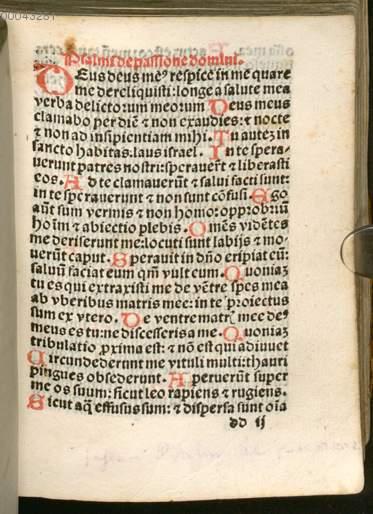 00043281
Psalmi de passione domini.
DEus deus me⁹ respice in me quare
me dereliquisti: longe a salute mea
verba delictoꝝ meoꝝ. Deus meus
clamabo per diē ⁊ non exaudies: ⁊ nocte
⁊ non ad insipientiam mihi. Tu autez in
sancto habitas: laus israel. In te spera-
uerunt patres nostri: sperauerūt ⁊ liberasti
eos. Ad te clamauerūt ⁊ salui facti sunt:
in te sperauerunt ⁊ non sunt cōfusi. Ego
aūt sum vermis ⁊ non homo: opprobriū
hoīm ⁊ abiectio plebis. Omēs vidētes
me deriserunt me: locuti sunt labijs ⁊ mo-
uerūt caput. Sperauit in dn̄o eripiat eū:
saluū faciat eum qm̄ vult eum. Quoniaz
tu es qui extraxisti me de vētre spes mea
ab vberibus matris mee: in te ꝓiectus
sum ex vtero. De ventre matrꝭ mee de⁹
meus es tu: ne discesseris a me. Quoniaz
tribulatio ꝓxima est: ⁊ nō est qui adiuuet
Circundederunt me vituli multi: thauri
pingues obsederunt. Aperuerūt super
me os suum: sicut leo rapiens ⁊ rugiens.
Sicut aq̄ effusus sum: ⁊ dispersa sunt oīa
dd ij